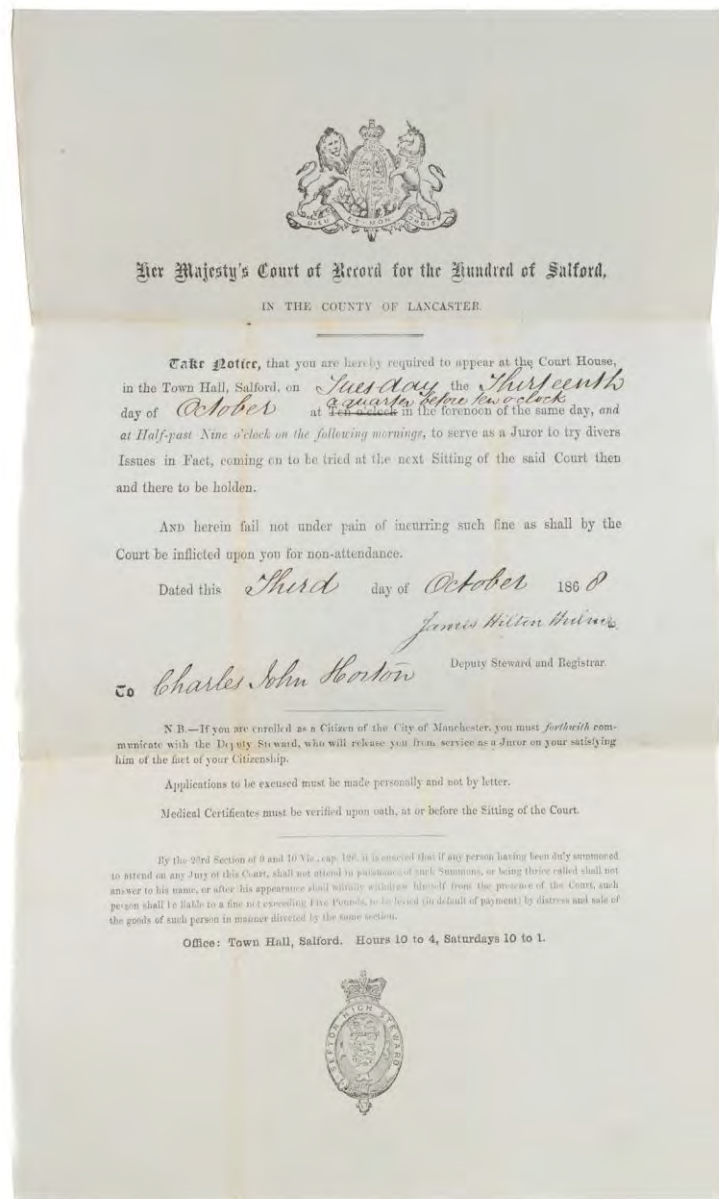 DIEU ET MON DROIT
Her Majesty's Court of Record for the Hundred of Salford,
IN THE COUNTY OF LANCASTER.
Take Notice, that you are hereby required to appear at the Court House,
in the Town Hall, Salford, on Tuesday the Thirteenth
a quarter before ten o'clock
day of October at Ten o'clock in the forenoon of the same day, and
at Half-past Nine o'clock on the following mornings, to serve as a Juror to try divers
Issues in Fact, coming on to be tried at the next Sitting of the said Court then
and there to be holden.
AND herein fail not under pain of incurring such fine as shall by the
Court be inflicted upon you for non-attendance.
Dated this Third day of October 1868
James Hilton Hulme
Deputy Steward and Registrar.
To Charles John Horton
N.B.—If you are enrolled as a Citizen of the City of Manchester, you must forthwith com-
municate with the Deputy Steward, who will release you from service as a Juror on your satisfying
him of the fact of your Citizenship.
Applications to be excused must be made personally and not by letter.
Medical Certificates must be verified upon oath, at or before the Sitting of the Court.
By the 23rd Section of 9 and 10 Vic., cap. 126, it is enacted that if any person having been duly summoned
to attend on any Jury of this Court, shall not attend in pursuance of such Summons, or being thrice called shall not
answer to his name, or after his appearance shall wilfully withdraw himself from the presence of the Court, such
person shall be liable to a fine not exceeding Five Pounds, to be levied (in default of payment) by distress and sale of
the goods of such person in manner directed by the same section.
Office: Town Hall, Salford. Hours 10 to 4, Saturdays 10 to 1.
SEFTON HIGH STEWARD